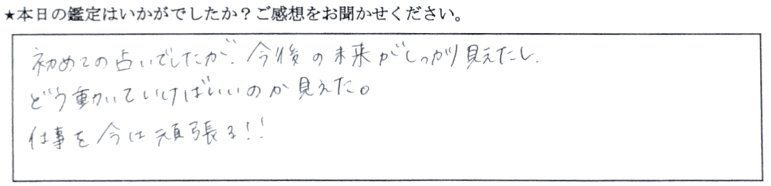 ★本日の鑑定はいかがでしたか？ご感想をお聞かせください。
初めての占いでしたが、今後の未来がしっかり見えたし、
どう動いていけばいいのか見えた。
仕事を今は頑張る！！